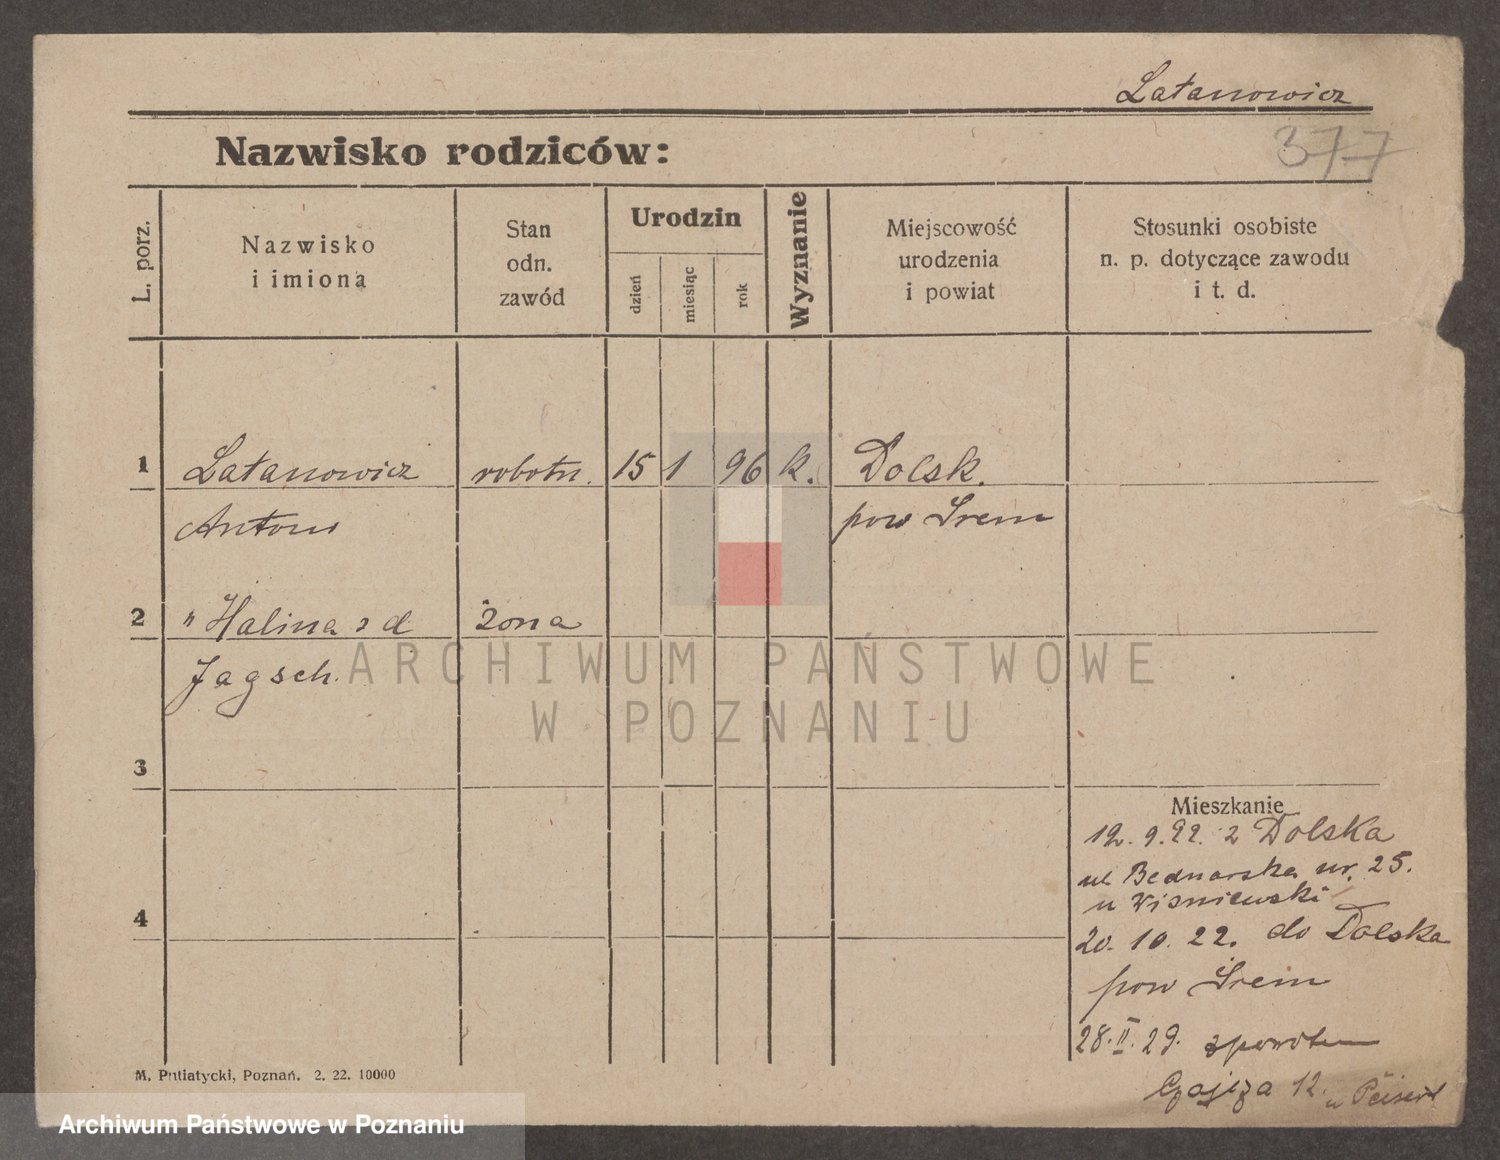 Latanowicz
377
Nazwisko rodziców:
L. porz.
Nazwisko
i imiona
Stan
odn.
zawód
Urodzin
dzień
miesiąc
rok
Wyznanie
Miejscowość
urodzenia
i powiat
Stosunki osobiste
n. p. dotyczące zawodu
i t. d.
1
Latanowicz
robotn.
15
1
96
k.
Dolsk.
Antoni
pow Śrem
2
" Halina z d
żona
Jagsch.
ARCHIWUM PAŃSTWOWE
W POZNANIU
3
Mieszkanie
12. 9. 22. z Dolska
ul Bednarska nr. 25.
u Wisniewski
4
20. 10. 22. do Dolska
pow Śrem
28. II. 29. zpowrotem
12. u
M. Putiatycki, Poznań. 2. 22. 10000
Archiwum Państwowe w Poznaniu